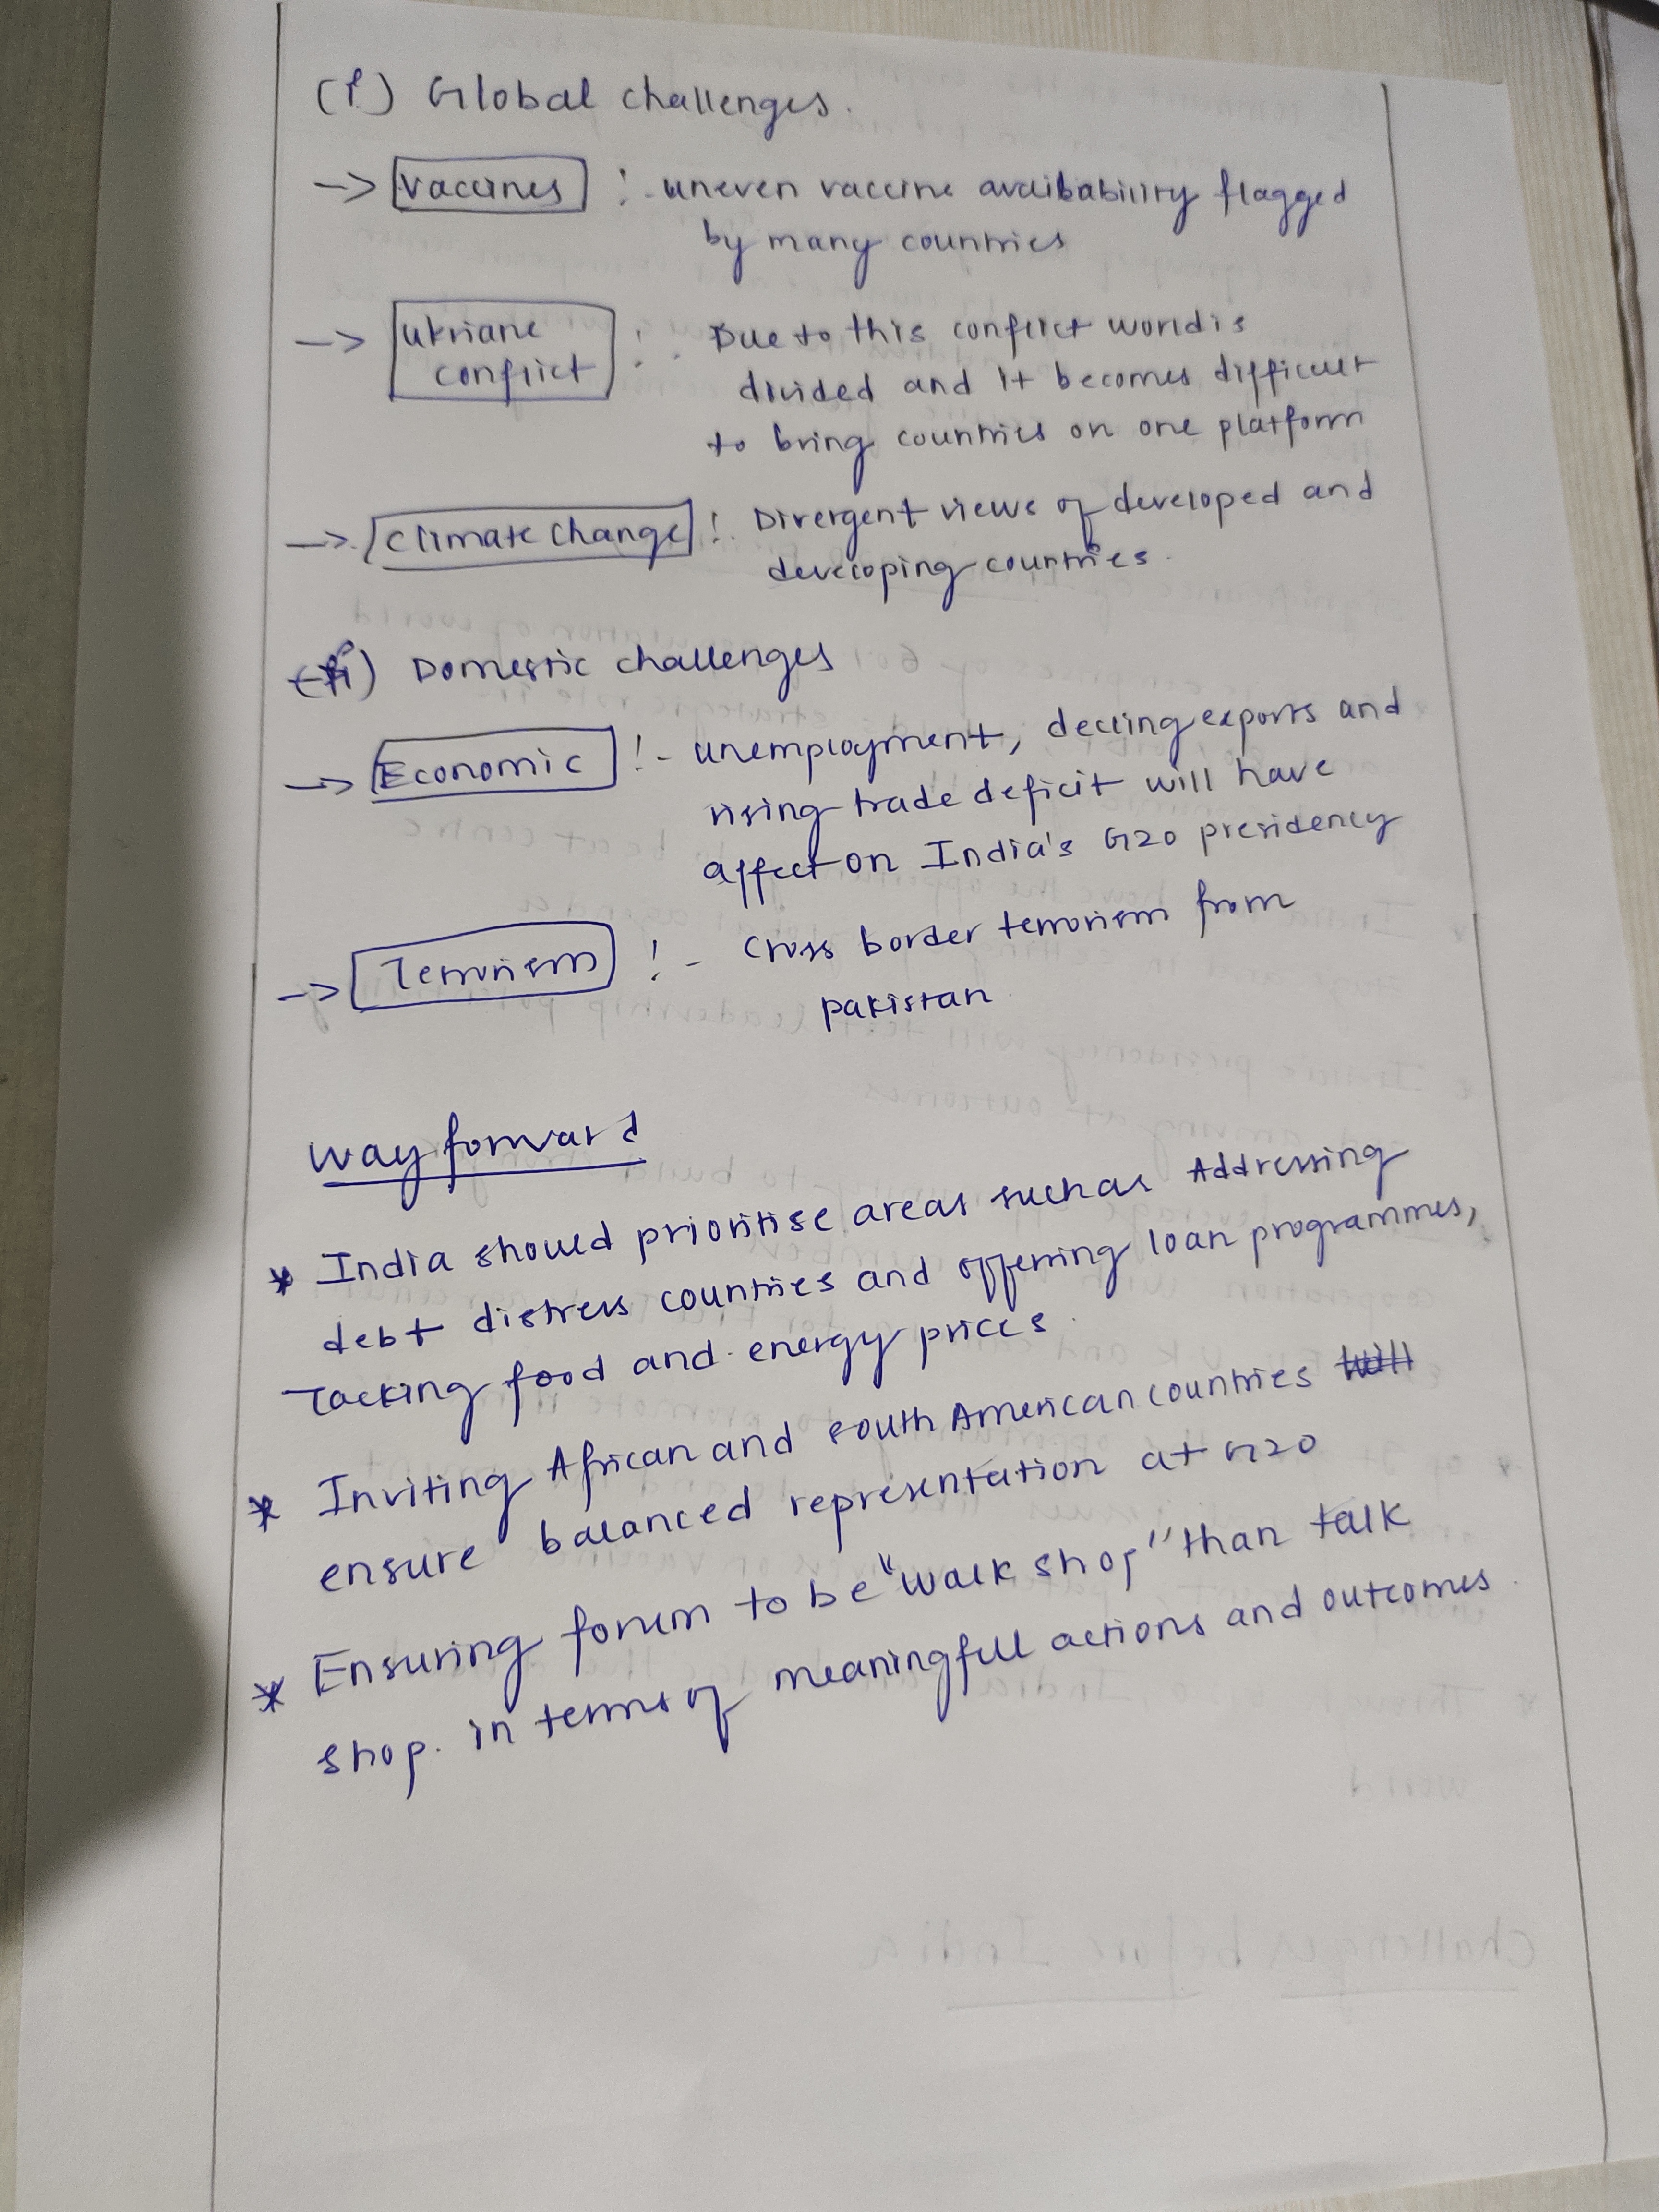 (i) Global challenges.
-> vaccines :- uneven vaccine avalibability flagged
by many countries
-> ukriane
conflict :- Due to this conflict world is
divided and it becomes difficult
to bring countries on one platform
-> climate change :- Divergent views of developed and
developing countries.
(ii) Domestic challenges
-> Economic :- unemployment, decling exports and
rising trade deficit will have
affect on India's G20 presidency
-> Terrorism :- cross border terrorism from
pakistan
way forward
* India should prioritise areas such as Addressing
debt distress countries and offerring loan programmes,
Tacking food and energy prices.
* Inviting African and south American countries will
ensure balanced representation at G20
* Ensuring forum to be "walk shop" than talk
shop. in terms of meaningfull actions and outcomes.
Challenges before India